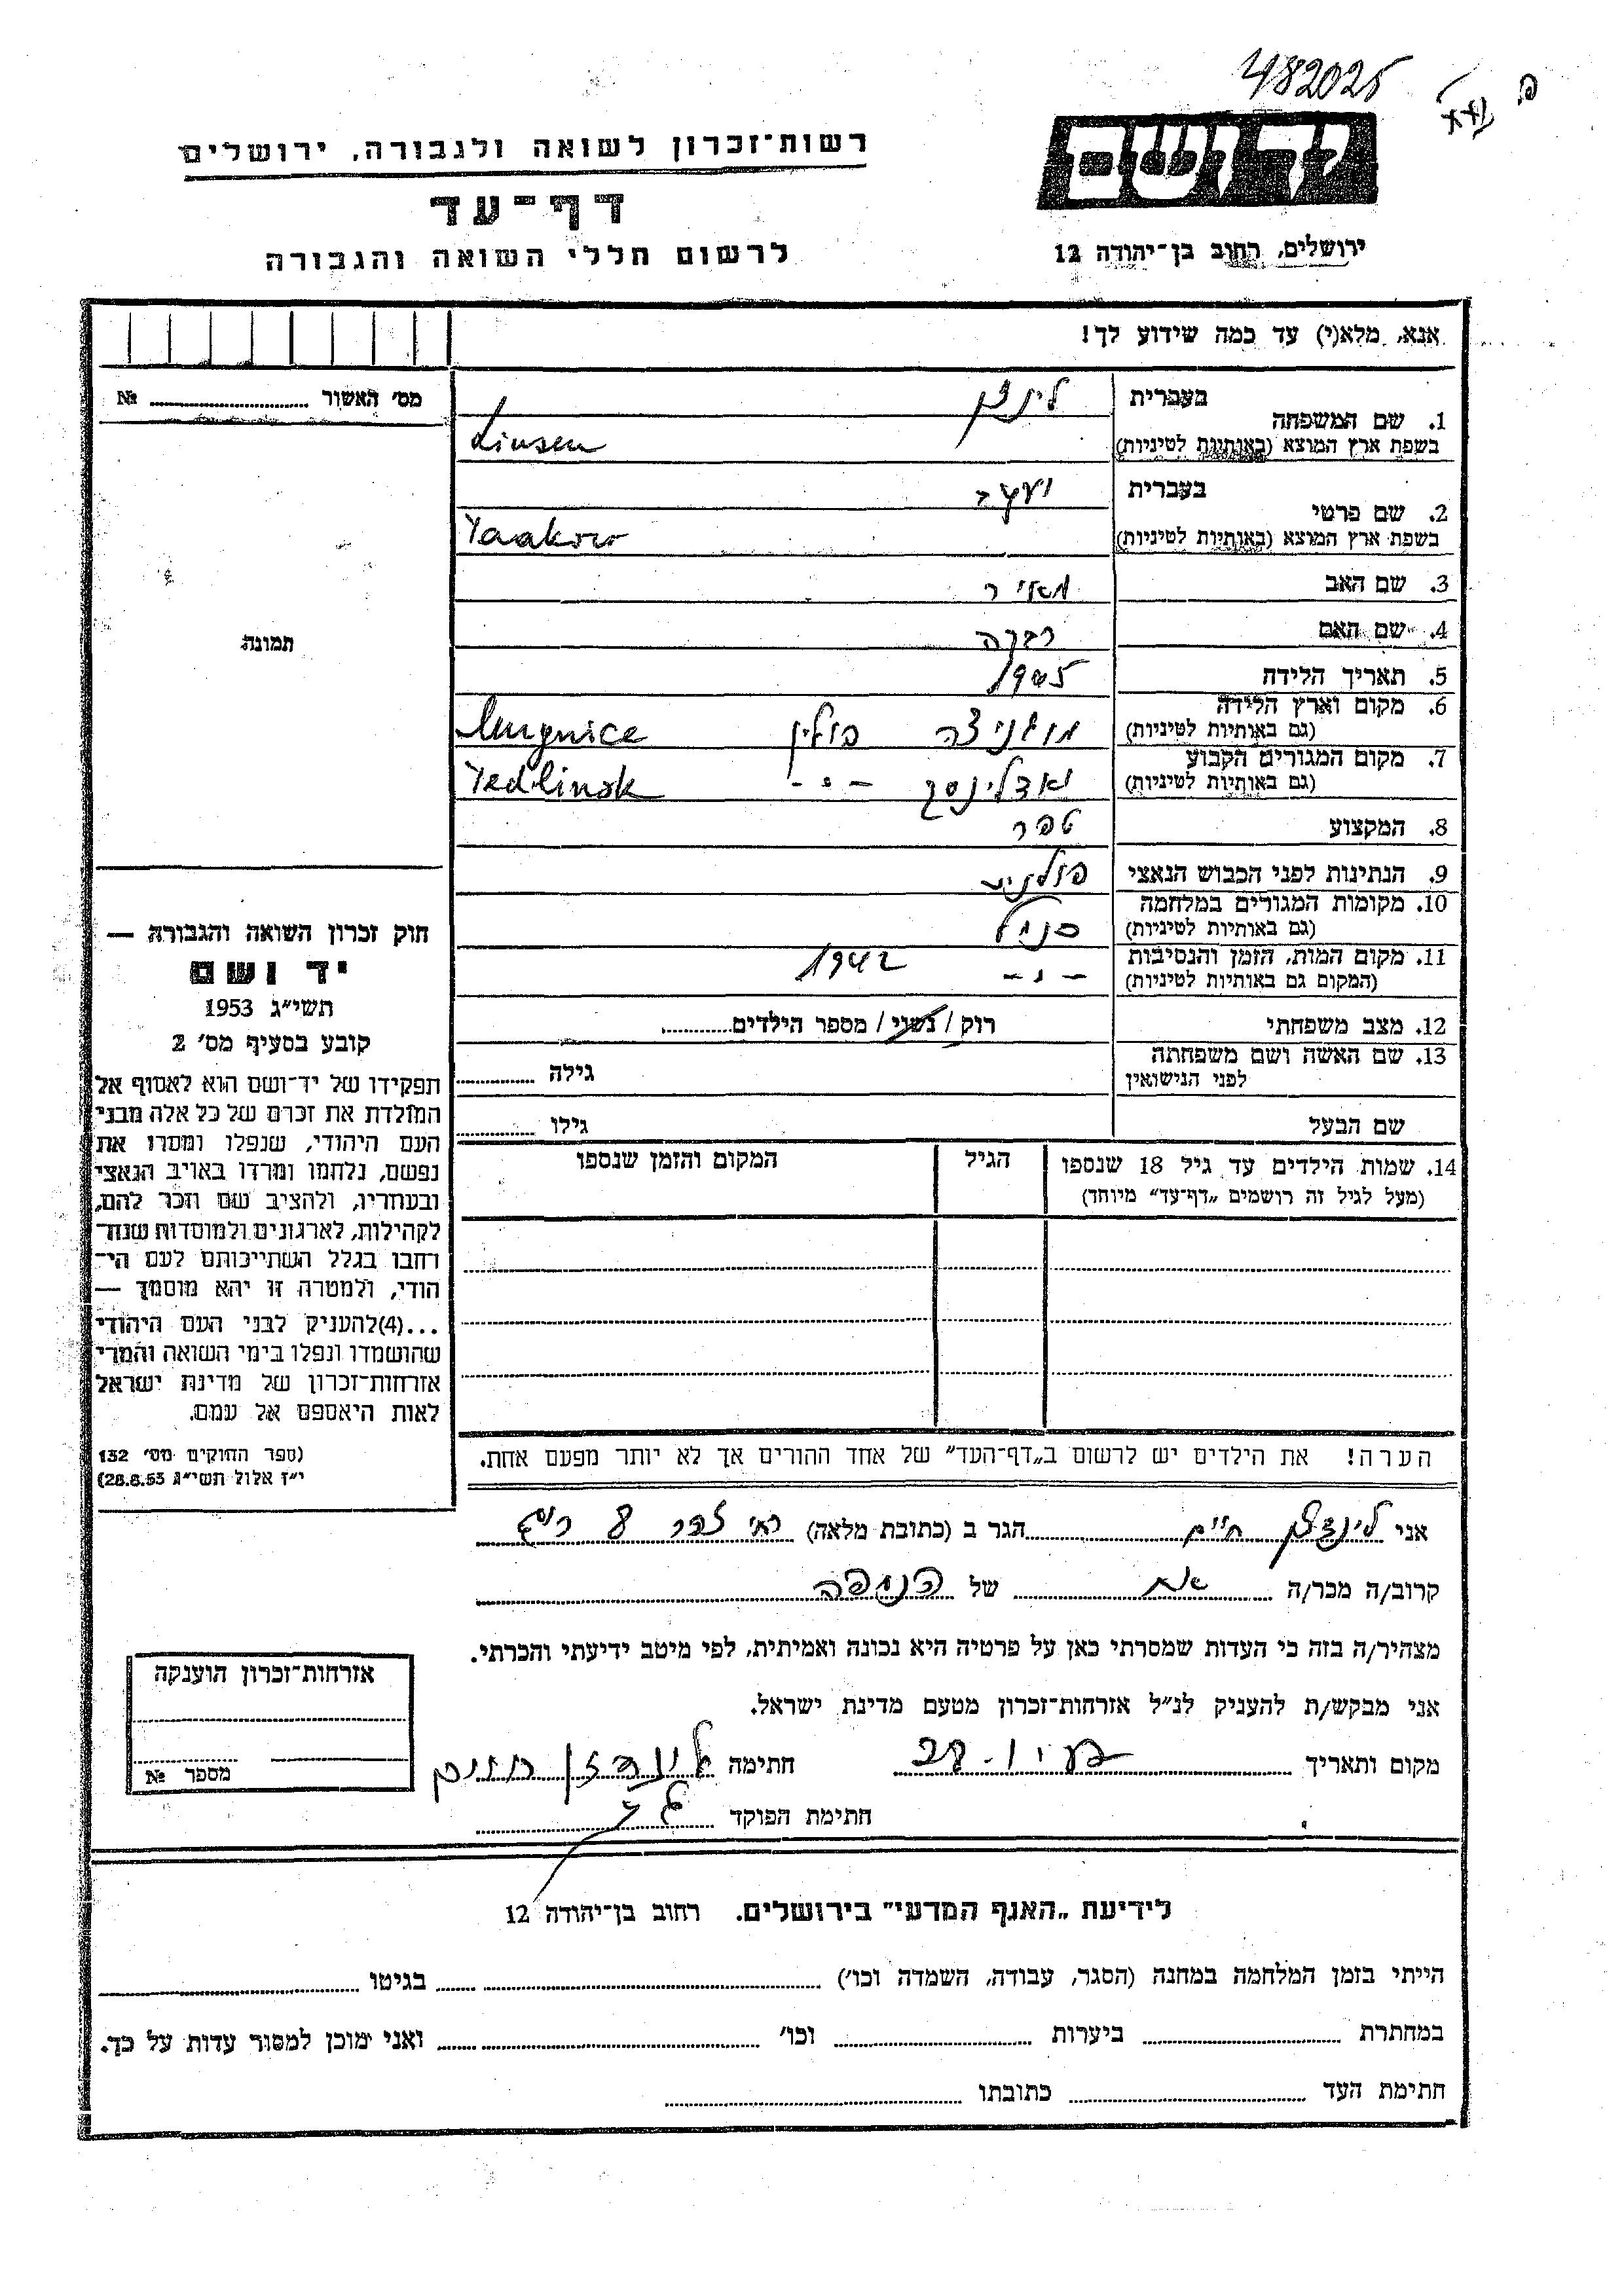 482025
רשות־זכרון לשואה ולגבורה, ירושלים
דף־עד
לרשום חללי השואה והגבורה
יד ושם
ירושלים, רחוב בן־יהודה 12
אנא, מלא(י) עד כמה שידוע לך!
מס' האשור № ........
1. שם המשפחה
בעברית לינזן
בשפת ארץ המוצא (באותיות לטיניות) Linsen
2. שם פרטי
בעברית יעקב
בשפת ארץ המוצא (באותיות לטיניות) Yaakow
3. שם האב מאיר
4. שם האם רבקה
5. תאריך הלידה
6. מקום וארץ הלידה
(גם באותיות לטיניות) מוגניצה פולין
7. מקום המגורים הקבוע
(גם באותיות לטיניות) יאדלינסק -"- Yedlinsk
8. המקצוע ספר
9. הנתינות לפני הכבוש הנאצי פולנית
10. מקומות המגורים במלחמה
(גם באותיות לטיניות) כנ"ל
11. מקום המות, הזמן והנסיבות
(המקום גם באותיות לטיניות) -"- 1942
12. מצב משפחתי רוק / נשוי / מספר הילדים........
13. שם האשה ושם משפחתה
לפני הנישואין גילה ........
שם הבעל גילו ........
14. שמות הילדים עד גיל 18 שנספו הגיל המקום והזמן שנספו
(מעל לגיל זה רושמים „דף־עד” מיוחד)
הערה! את הילדים יש לרשום ב„דף־העד” של אחד ההורים אך לא יותר מפעם אחת.
תמונה
חוק זכרון השואה והגבורה —
יד ושם
תשי"ג 1953
קובע בסעיף מס' 2
תפקידו של יד־ושם הוא לאסוף אל
המולדת את זכרם של כל אלה מבני
העם היהודי, שנפלו ומסרו את
נפשם, נלחמו ומרדו באויב הנאצי
ובעוזריו, ולהציב שם וזכר להם,
לקהילות, לארגונים ולמוסדות שנח־
רחבו בגלל השתייכותם לעם הי־
הודי, ולמטרה זו יהא מוסמך —
...(4)להעניק לבני העם היהודי
שהושמדו ונפלו בימי השואה והמרי
אזרחות־זכרון של מדינת ישראל
לאות היאספם אל עמם.
(ספר החוקים מס' 132
י"ז אלול תשי"ג 28.8.53)
אני לינדזן חיים הגר ב (כתובת מלאה)
קרוב/ה מכר/ה אח של הנספה
מצהיר/ה בזה כי העדות שמסרתי כאן על פרטיה היא נכונה ואמיתית, לפי מיטב ידיעתי והכרתי.
אני מבקש/ת להעניק לנ"ל אזרחות־זכרון מטעם מדינת ישראל.
מקום ותאריך חתימה
חתימת הפוקד
אזרחות־זכרון הוענקה
מספר №
לידיעת „האגף המדעי” בירושלים. רחוב בן־יהודה 12
הייתי בזמן המלחמה במחנה (הסגר, עבודה, השמדה וכו') ........ בגיטו ........
במחתרת ........ ביערות ........ וכו' ........ ואני מוכן למסור עדות על כך.
חתימת העד ........ כתובתו ........